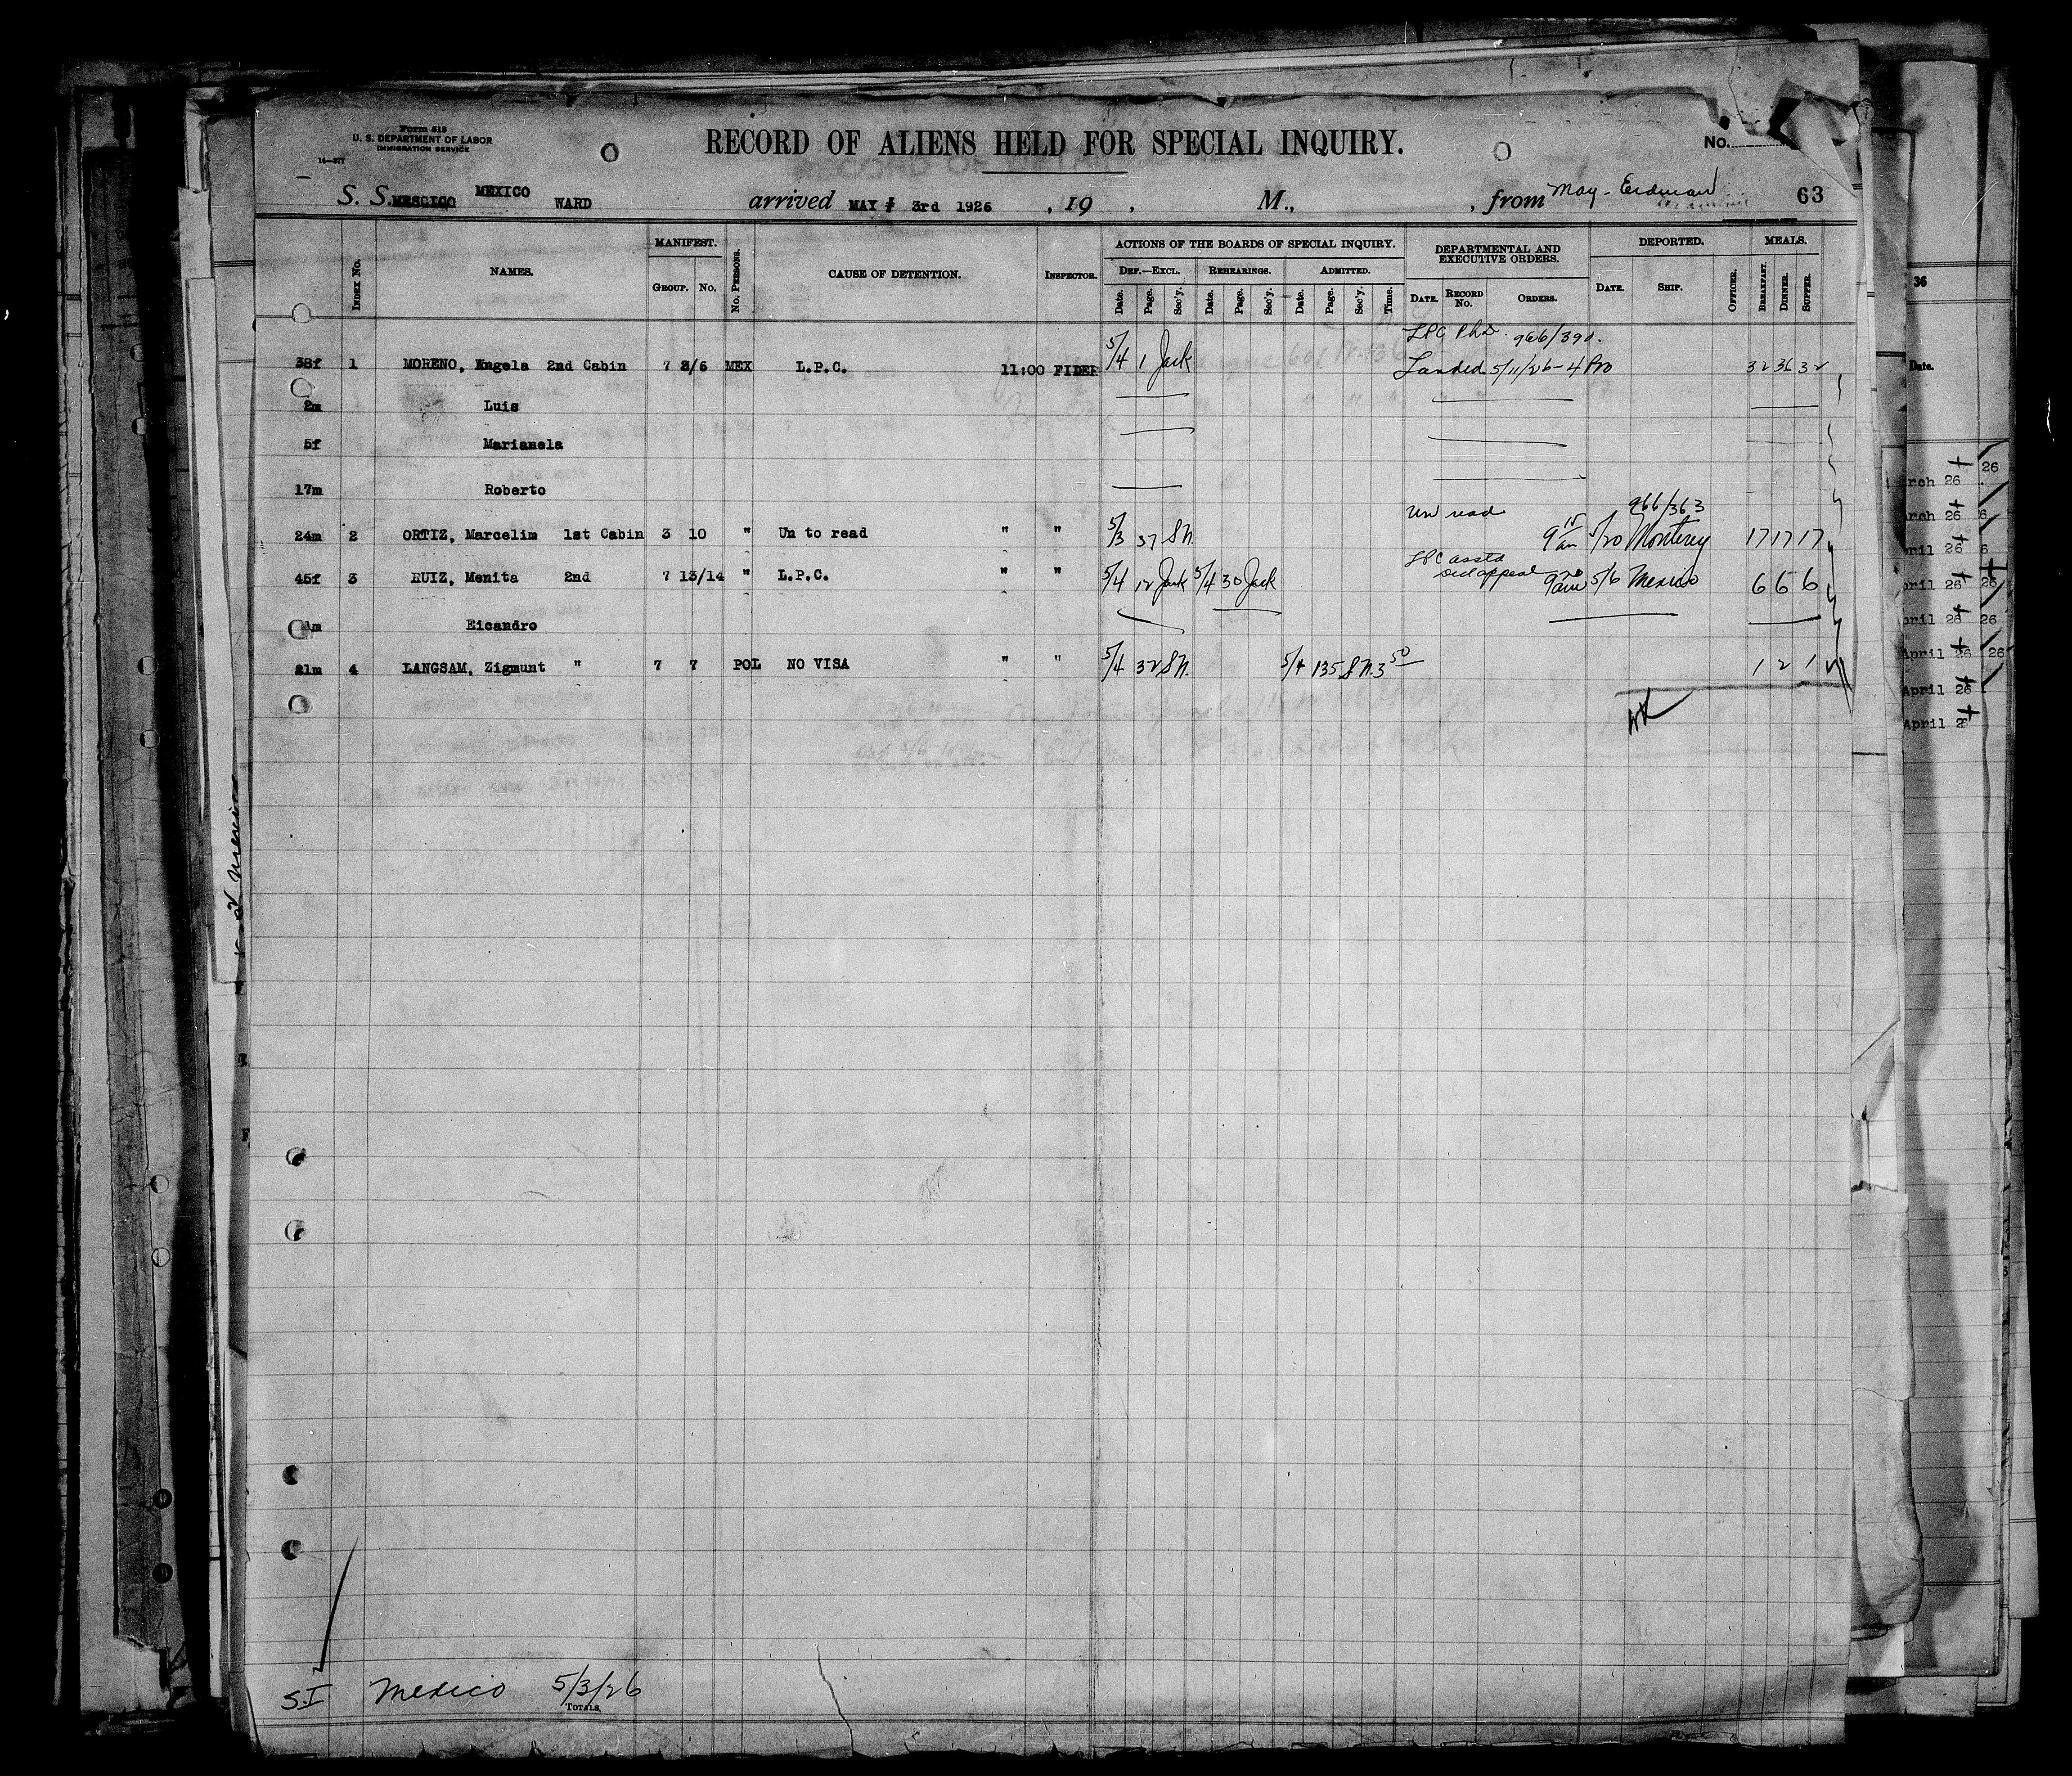 Form 518
U. S. DEPARTMENT OF LABOR
IMMIGRATION SERVICE
14—577
RECORD OF ALIENS HELD FOR SPECIAL INQUIRY.
No.
S. S. MESCICO MEXICO WARD arrived MAY 3rd 1926 , 19 , M., , from May - Erdman 63
INDEX No. NAMES. MANIFEST. GROUP. No. No. PERSONS. CAUSE OF DETENTION. INSPECTOR. ACTIONS OF THE BOARDS OF SPECIAL INQUIRY. DEPARTMENTAL AND EXECUTIVE ORDERS. DEPORTED. MEALS.
DEF.—EXCL. REHEARINGS. ADMITTED.
Date. Page. Sec'y. Date. Page. Sec'y. Date. Page. Sec'y. Time. DATE. RECORD No. ORDERS. DATE. SHIP. OFFICER. BREAKFAST. DINNER. SUPPER.
LPC 966/390.
38f 1 MORENO, Angela 2nd Cabin 7 MEX L.P.C. 11:00 FIDER 5/4 1 Jack Landed 5/11/26-4 32 36 32
2m Luis
5f Marianela
17m Roberto
Un read 966/363
24m 2 ORTIZ, Marcelim 1st Cabin 3 10 " Un to read " " 5/3 37 SN. 9 15 am 5/20 Monterey 17 17 17
LPC assta
appeal
45f 3 RUIZ, Menita 2nd 7 13/14 " L.P.C. " " 5/4 12 Jack 5/4 30 Jack 9 20 am 5/6 Mexico 6 6 6
Eicandro
21m 4 LANGSAM, Zigmunt " 7 7 POL NO VISA " " 5/4 32 SN. 5/4 135 SN. 3 50 1 2 1
S.I Mexico 5/3/26
TOTALS.
36
Date.
rch 26 26
arch 26 6
pril 26 6
pril 26 26
pril 26 26
April 26 26
April 26
April 26